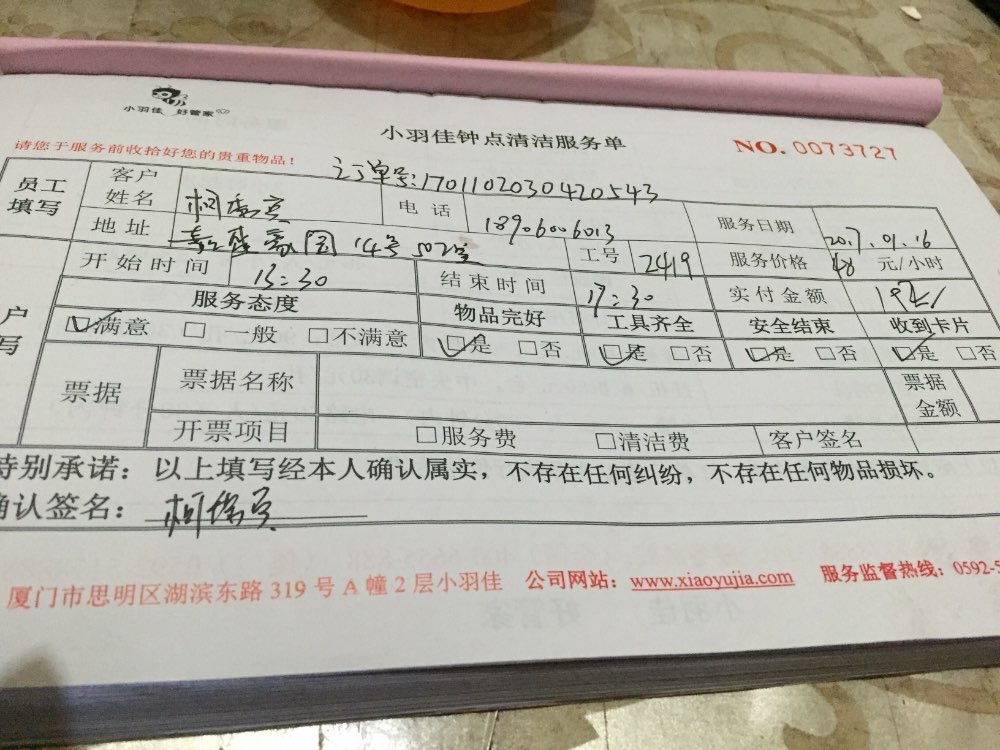 小羽佳 好管家
小羽佳钟点清洁服务单
NO. 0073727
请您于服务前收拾好您的贵重物品！
订单号:1701102030420543
员工填写 客户姓名 柯 电话 18906006013 服务日期 2017.01.16
地址 豪园14号502室 工号 2419 服务价格 48 元/小时
开始时间 13:30 结束时间 17:30 实付金额 192
户 写 服务态度 物品完好 工具齐全 安全结束 收到卡片
☑满意 □一般 □不满意 ☑是 □否 ☑是 □否 ☑是 □否 ☑是 □否
票据 票据名称 票据金额
开票项目 □服务费 □清洁费 客户签名
特别承诺：以上填写经本人确认属实，不存在任何纠纷，不存在任何物品损坏。
确认签名： 柯
厦门市思明区湖滨东路 319 号 A 幢 2 层小羽佳 公司网站：www.xiaoyujia.com 服务监督热线：0592-5